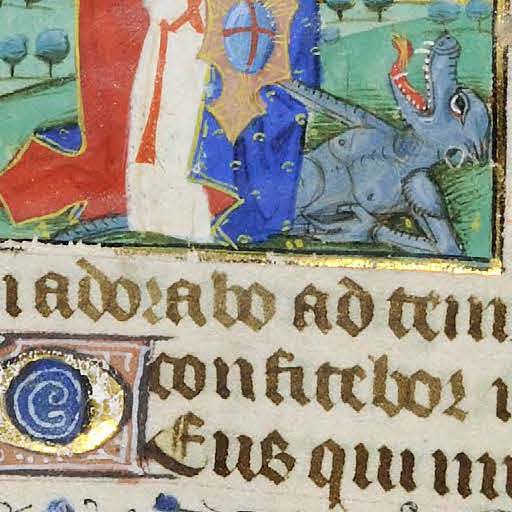 adorabo ad tem
confitebor
Eus qui